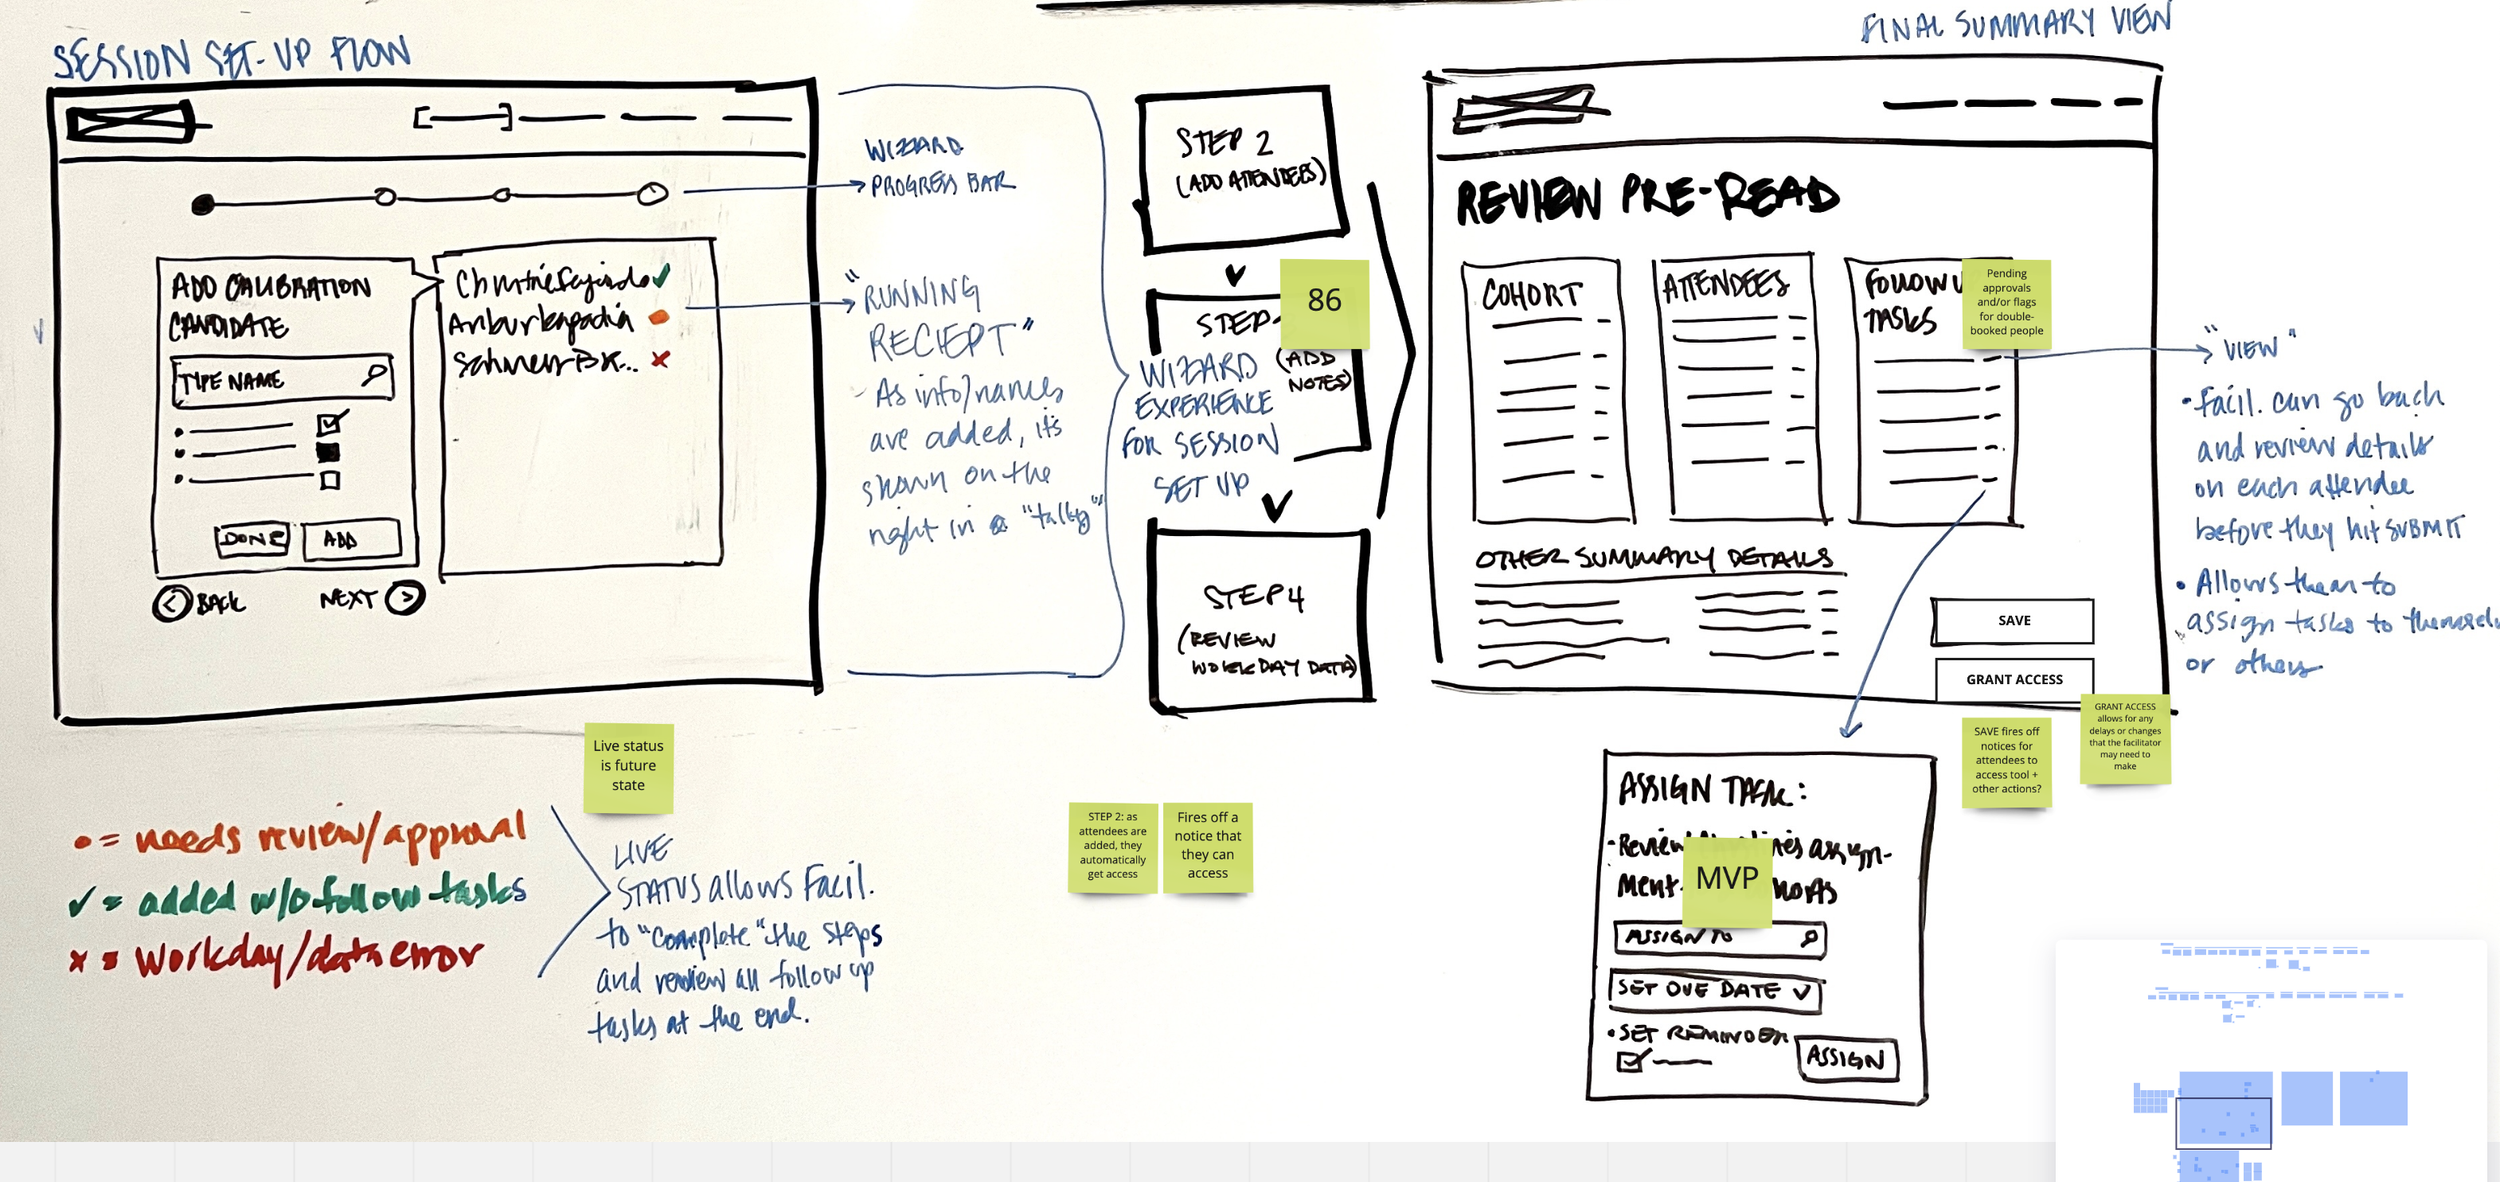 SESSION SET-UP FLOW
ADD CALIBRATION
CANDIDATE
TYPE NAME
DONE
ADD
BACK
NEXT
WIZZARD
PROGRESS BAR
"RUNNING
RECIEPT"
- As info/names
are added, it's
shown on the
right in a "talley"
Live status
is future
state
= needs review/approval
= added w/o follow tasks
= Workday/data error
LIVE
STATUS allows Facil.
to "complete" the steps
and review all follow up
tasks at the end.
STEP 2
(ADD ATTENDEES)
STEP
86
(ADD
NOTES)
WIZARD
EXPERIENCE
FOR SESSION
SET UP
STEP 4
(REVIEW
WORKDAY DATA)
STEP 2: as
attendees are
added, they
automatically
get access
Fires off a
notice that
they can
access
FINAL SUMMARY VIEW
REVIEW PRE-READ
COHORT
ATTENDEES
FOLLOW U
TASKS
Pending
approvals
and/or flags
for double-
booked people
OTHER SUMMARY DETAILS
SAVE
GRANT ACCESS
"VIEW"
• Facil. can go back
and review details
on each attendee
before they hit SUBMIT
• Allows them to
assign tasks to
or others.
SAVE fires off
notices for
attendees to
access tool +
other actions?
GRANT ACCESS
allows for any
delays or changes
that the facilitator
may need to
make
ASSIGN TASK:
• Review
MVP
ASSIGN TO
SET DUE DATE
• SET REMINDER
ASSIGN